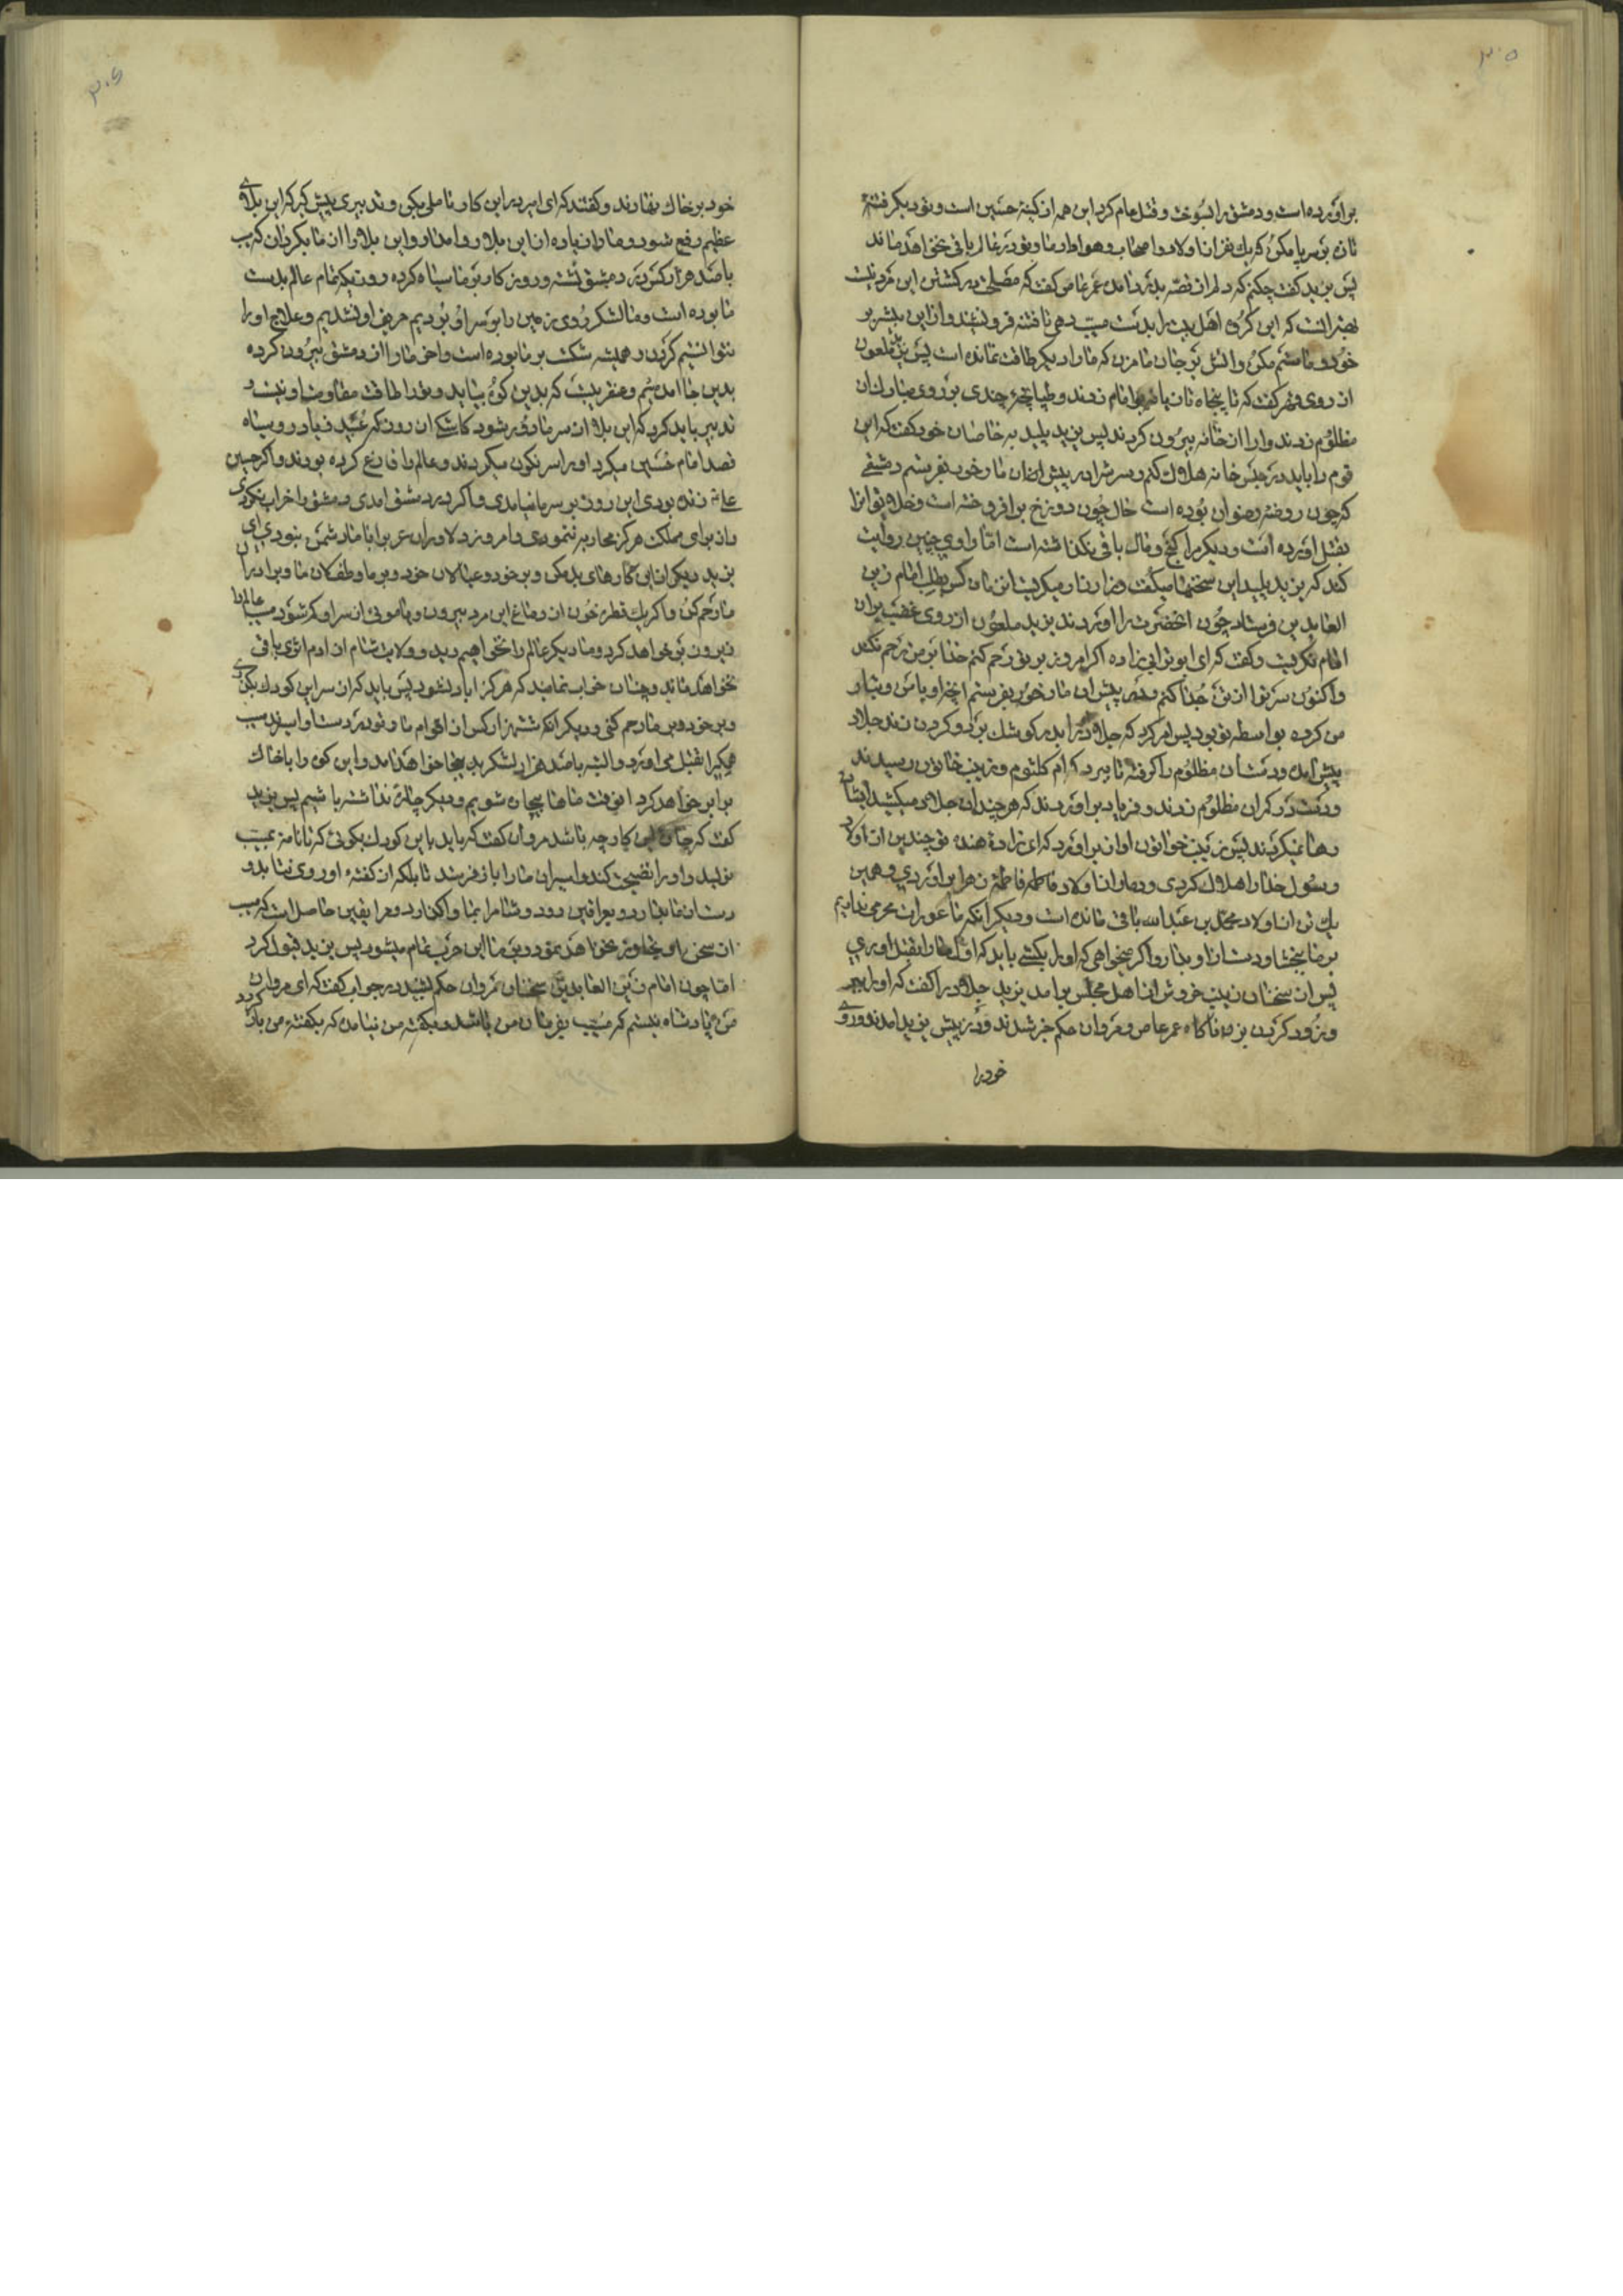 ۳۰۵
برآورده است و دمشق را بسوخت و قتل عام کرد این همه از کینهٔ حسین است و تو دیگر فتنهٔ
تازه بر سر پا مکن که یک نفر از اولاد و اصحاب و هوادار ما و تو در عالم باقی نخواهد ماند
پس یزید گفت چکنم که دلم از غصه بدرد آمده عمر عاص گفت که مصلحت در کشتن این مرد نیست
بهتر آنست که این گروه اهل بیت را بدست مسیب دهی تا فتنه فرو نشیند و از این بیشتر بر
خود و ما ستم مکن و آتش بر جان ما مزن که ما را دیگر طاقت نمانده است پس یزید ملعون
از روی قهر گفت که تا پنجاه تازیانه بر امام زدند و طپانچهٔ چندی بر روی مبارک آن
مظلوم زدند و او را از خانه بیرون کردند پس یزید پلید به خاصان خود گفت که این
قوم را باید در حبس خانه هلاک کنم و سرش را در پیش خان مادر خود بفرستم دمشقی
که چون روضهٔ رضوان بوده است حال چون دوزخ برافروخته است و خلق تو انرا
بقتل آورده است و دیگر مرا گنج و مال باقی نگذاشته است اما راوی چنین روایت
کند که یزید پلید این سخنها میگفت و زار زار میگریست انزمان کس بطلب امام زین
العابدین فرستاد چون آنحضرت را آوردند یزید ملعون از روی غضب بران
امام نگریست و گفت که ای ابوترابی زاده اگر امروز بر تو رحم کنم خدا بر من رحم نکند
و اکنون سر تو از تن جدا کنم و پیش مادر خود بفرستم آنچه او با من و تبار
من کرده بواسطه تو بود پس امر کرد که جلاد را بدر کوشک برد و گردن زند جلاد
پیش آمد و دستان مظلوم را گرفته تا ببرد که ام کلثوم و زینب خاتون رسیدند
و دست در کمر آن مظلوم زدند و فریاد برآوردند که هر چندان جلاد میکشید ایشان
رها نمیکردند پس زینب خواتون آواز برآورد که ای زادهٔ هنده تو چندین از اولاد
رسول خدا را هلاک کردی و دمار از اولاد فاطمه زهرا برآوردی و همین
یک تن از اولاد محمد بن عبدالله باقی مانده است و دیگر آنکه ما عورات محرمی نداریم
بر ما ببخشا و دست از او بدار و اگر میخواهی که او را بکشی باید که اول ما را بقتل آوری
پس از سخنان زینب خروش از اهل مجلس برآمد یزید جلاد را گفت که او را ببر
و زود گردن بزن ناگاه عمر عاص و مروان حکم خبر شدند و در پیش یزید آمدند و روی
خود را
۳۰۶
خود بر خاک نهادند و گفتند که ای امیر در این کار تاملی بکن و تدبیری پیش گیر که این بلای
عظیم رفع شود و ما را زیاده از این بلا روا مدار و این بلا را از ما بگردان که مسیب
با صد هزار کس در دمشق نشسته و روزگار بر ما سیاه کرده روزیکه تمام عالم بدست
ما بوده است و ما لشکر روی زمین را بر سر او بردیم حریف او نشدیم و علاج او را
نتوانستیم کردن و همیشه شکست بر ما بوده است و آخر ما را از دمشق بیرون کرده
بدین جا آمده‌ایم و عنقریب است که بدین کوه بیاید و تو را طاقت مقاومت او نیست و
تدبیر باید کرد که این بلا از سر ما دور شود کاشکی آن روز که عبید زیاد رو سیاه
قصد امام حسین میکرد او را سرنگون میکردند و عالم را فارغ کرده بودند و اگر حسین
علی زنده بودی این روز بر سر ما نیامدی و اگر در دمشق آمدی دمشق را خراب نکردی
و از برای مملکت هرگز محاربه ننمودی و امروز دلاوران عرب را با ما دشمن نبودی ای
یزید دیگر از این کارهای بد مکن و بر خود و عیالان خود و بر ما و طفلکان ما و برادران
ما رحم کن و اگر یک قطره خون از دماغ این مرد بیرون و یا موئی از سر او کم شود مسیب عالم را
زیر و زبر خواهد کرد و ما دیگر عالم را نخواهیم دید و ولایت شام از آدم اثری باقی
نخواهد ماند و چنان خراب نماید که هرگز آباد نشود پس باید که از سر این کودک بگذری
و بر خود و بر ما رحم کنی و دیگر آنکه ششهزار کس از اقوام ما و تو در دست او اسیرند مسیب
همه را بقتل می‌آورد و البته با صد هزار لشکر بدینجا خواهد آمد و این کوه را با خاک
برابر خواهد کرد آنوقت ما ها بیجان شویم و دیگر چاره نداشته باشیم پس یزید
گفت که چارهٔ این کار چه باشد مروان گفت که باید با این کودک بگوئی که تا نامه بمسیب
نویسد و او را نصیحت کند و اسیران ما را باز فرستد تا بلکه از گفتهٔ او روی نتابد و
دست از ما بدارد و بعراقین رود و شام را بما واگذارد و مرا یقین حاصل است که مسیب
از سخن او تجاوز نخواهد نمود و بر ما این حرب تمام میشود پس یزید قبول کرد
اما چون امام زین العابدین سخنان مروان حکم شنید در جواب گفت که ای مروان
من پادشاه نیستم که مسیب بفرمان من باشد و بگفته من نیامده که بگفتهٔ من باز گردد